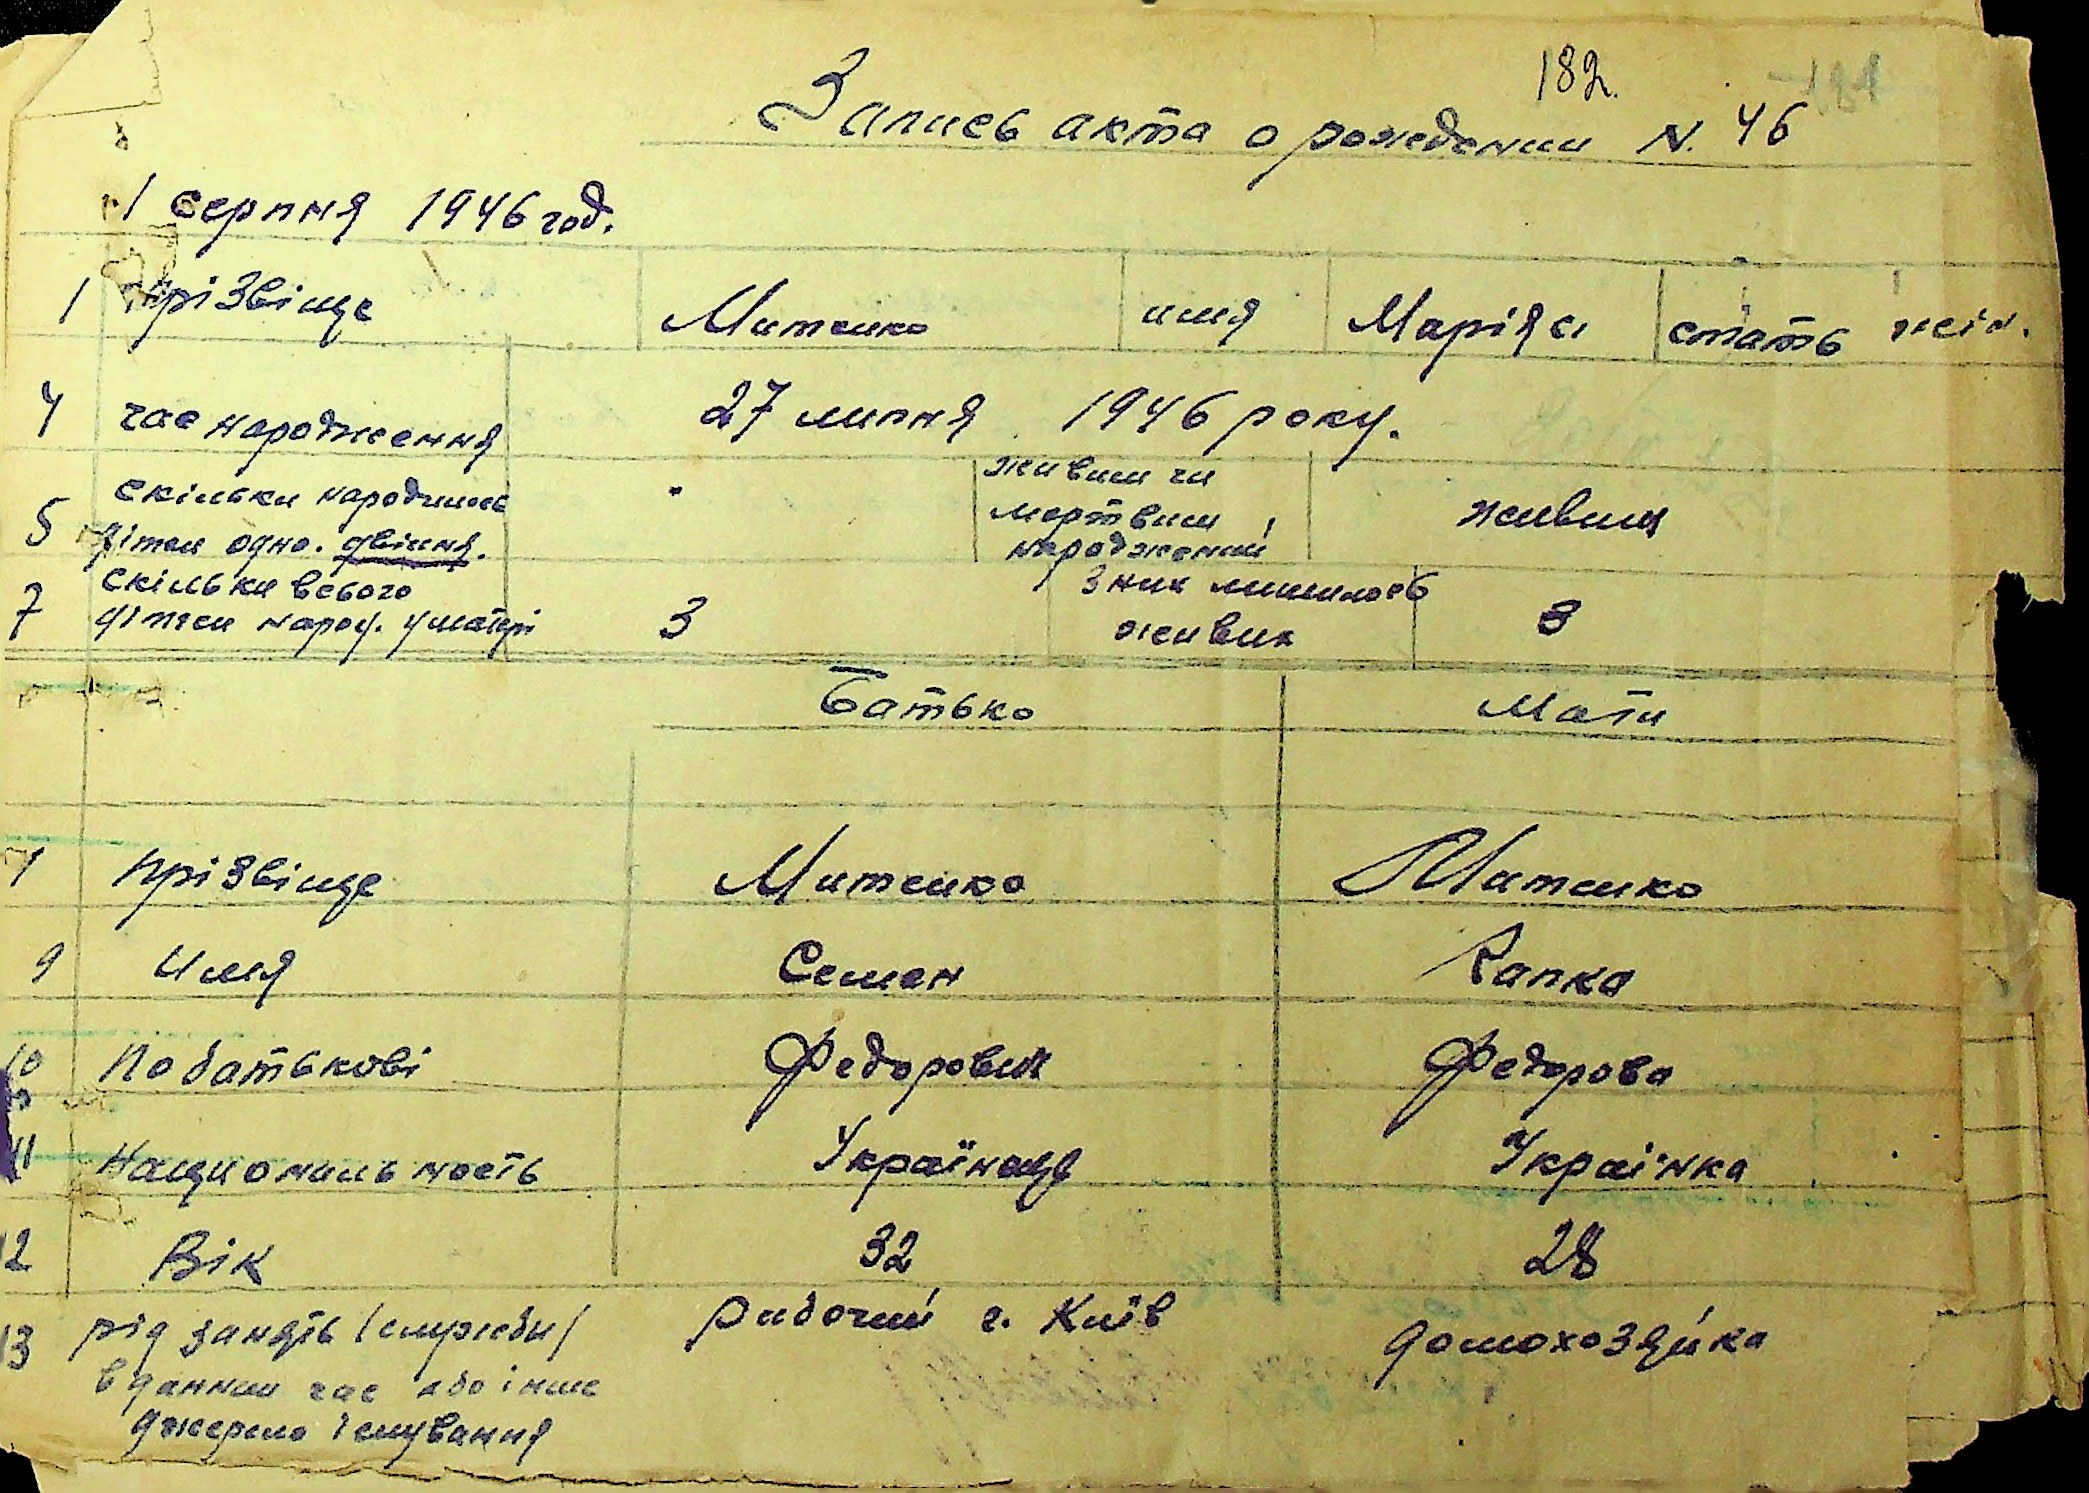 182.
Запись акта о рождении N. 46
1 серпня 1946 год.
1 прiзвiще Митенко имя Марiя стать жiн.
4 час народження 27 липня 1946 року.
5 скiльки народилось дiтей одно. двiйня.
живим чи мертвим народжений живим
7 скiльки всього дiтей народ. у матерi 3
з них лишилось живих 3
Батько Мати
прiзвiще Митенко Митенко
9 имя Семен Гапка
10 По батьковi Федорович Федорова
11 Национальность Українець Украiнка
12 Вiк 32 28
13 рiд занять /служби/ рабочий г. Київ домохозяйка
в данний час або iнше
джерело iснування